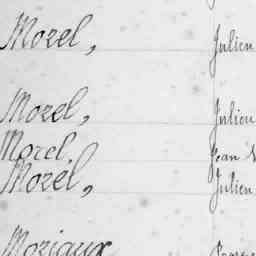 Morel, Julien
Morel, Julien
Morel, Jean
Morel, Julien
Moriaux